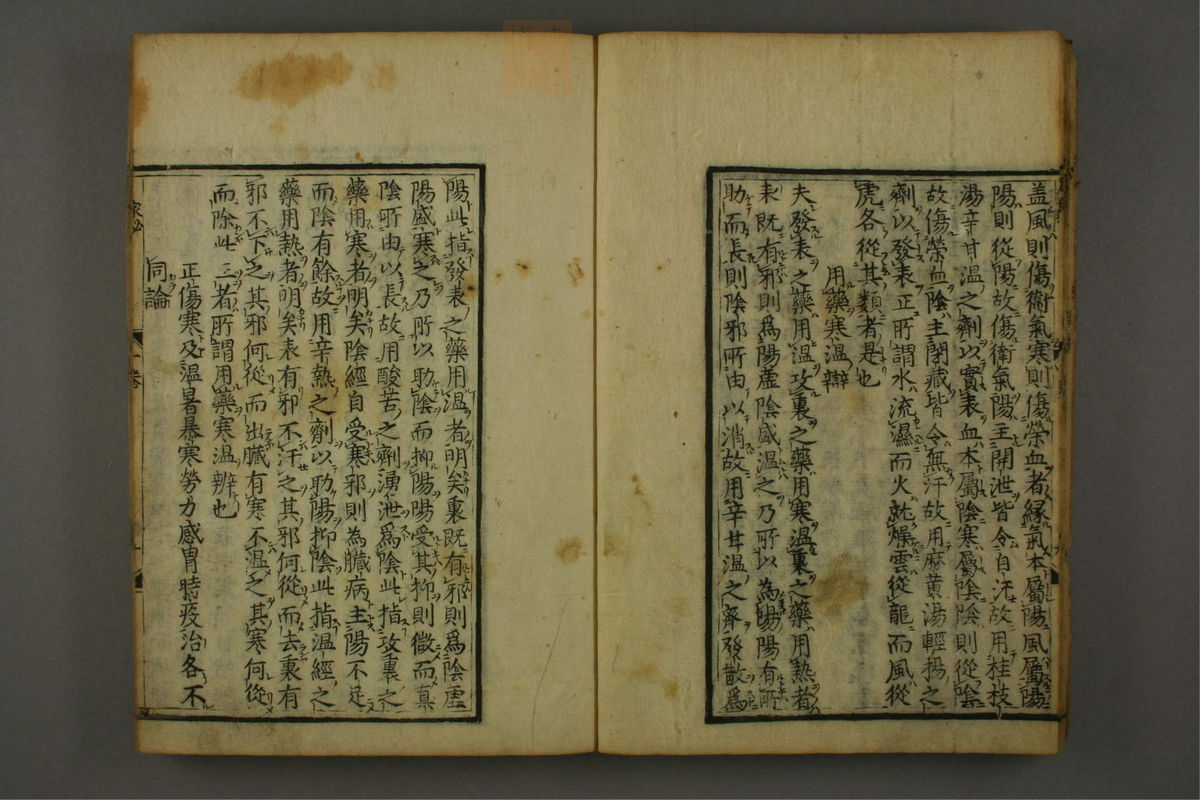 盖風則傷衞氣寒則傷榮血者縁氣本屬陽風屬陽
陽則從陽故傷衛氣陽主開泄皆令自汗故用桂枝
湯辛甘温之劑以實表血本屬陰寒屬陰陰則從陰
故傷榮血陰主閉藏皆令無汗故用麻黄湯輕揚之
劑以發表正所謂水流濕而火就燥雲從龍而風從
虎各從其類者是也
用藥寒温辯
夫發表之藥用温攻裏之藥用寒温裏之藥用熱者
表既有邪則爲陽虚陰盛温之乃所以為陽陽有所
助而長則陰邪所由以消故用辛甘温之劑發散爲
陽此指發表之藥用温者明矣裏既有邪則爲陰虚
陽盛寒之乃所以助陰而抑陽陽受其抑則微而真
陰所由以長故用酸苦之劑湧泄爲陰此指攻裏之
藥用寒者明矣陰經自受寒邪則為臓病主陽不足
而陰有餘故用辛熱之劑以助陽抑陰此指温經之
藥用熱者明矣表有邪不汗之其邪何從而去裏有
邪不下之其邪何從而出臓有寒不温之其寒何從
而除此三者所謂用藥寒温辨也
正傷寒及温暑暴寒勞力感冐時疫治各不
同論